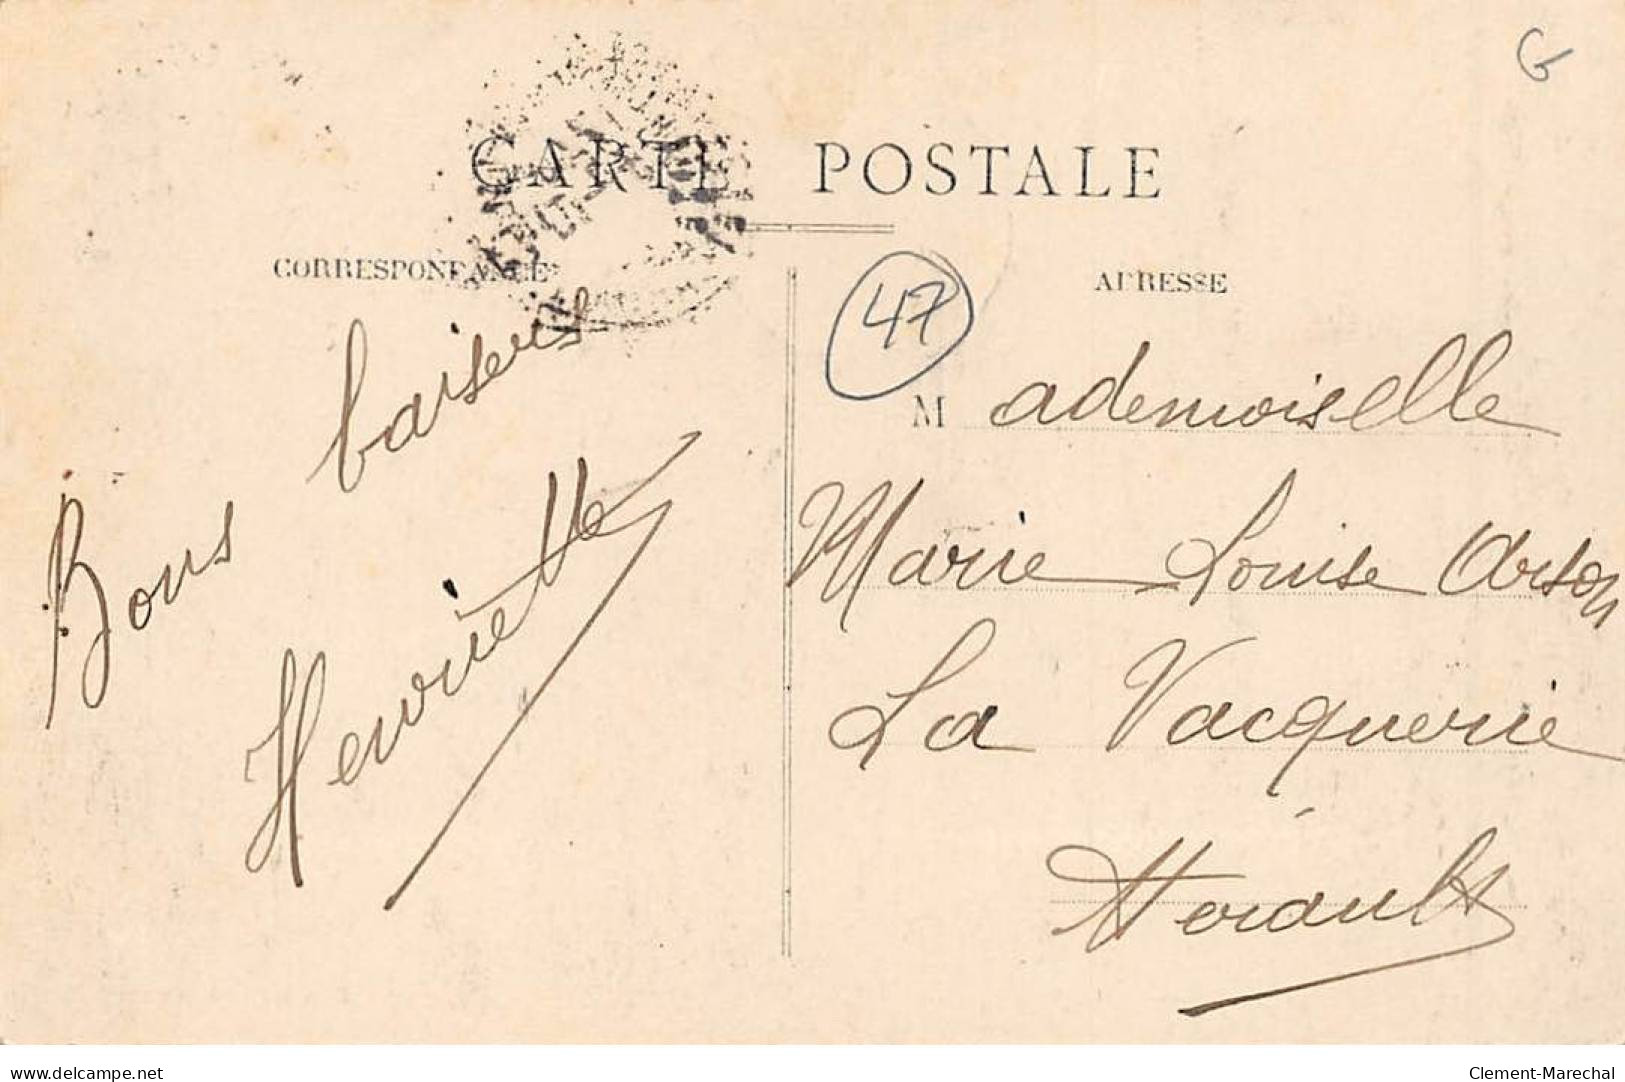 G
CARTE POSTALE
CORRESPONDANCE
ADRESSE
47
Bons baisers
Henriette
Mademoiselle
Marie Louise Arson
La Vacquerie
Hérault
www.delcampe.net
Clement-Marechal